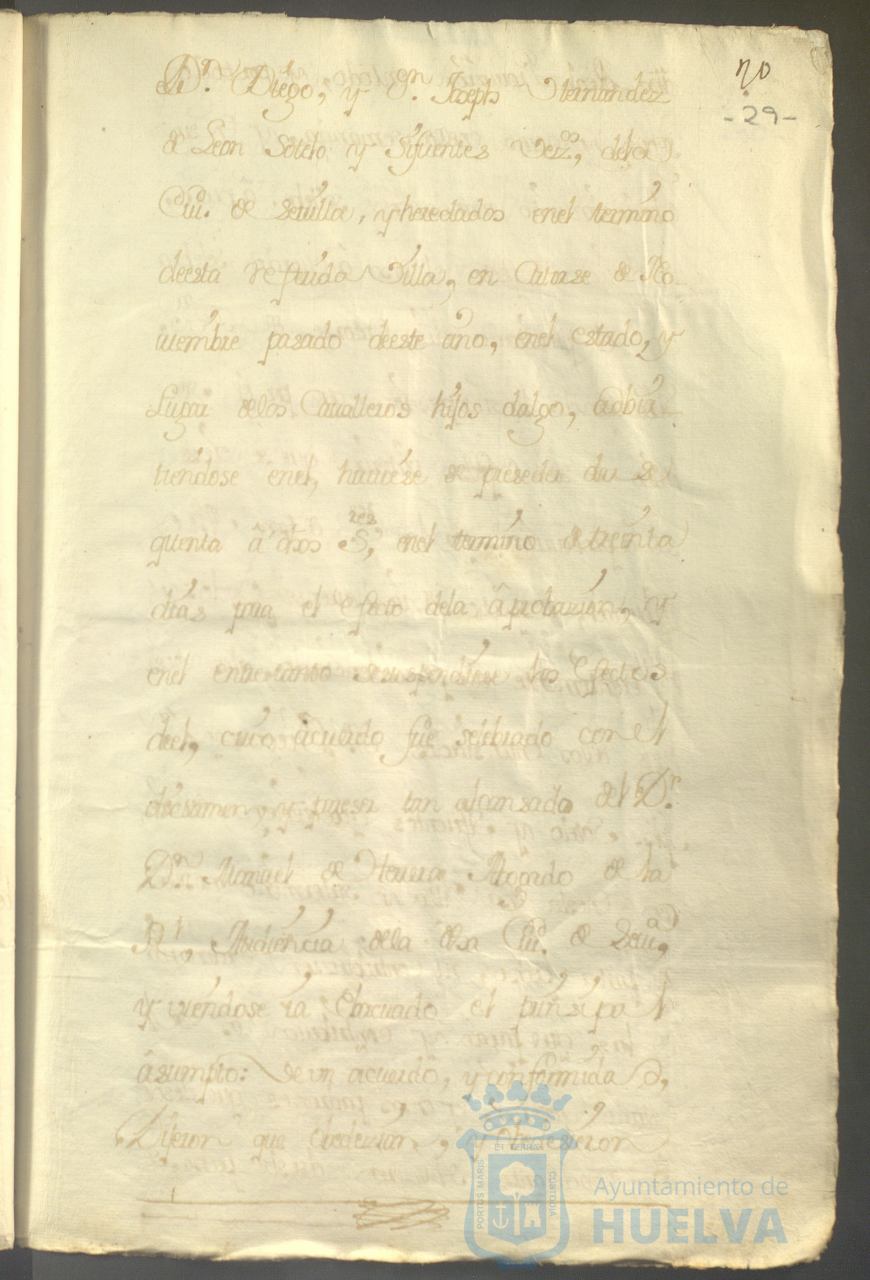 20
-29-
Dn. Diego, y Dn. Joseph Hernandez
de Leon Sotelo y Sifuentes Vezos, dela
Ciu. de Sevilla, y heredados enel termino
deesta referida Villa, en Catorze de No
viembre pasado deeste año, enel estado, y
Lugar delos Cavalleros hijos dalgo, adbir
tiendose enel, huviese de preseder dar se
quenta â dhos SSres, enel termino de treinta
dias para el efecto dela âprobazion, y
enel entretanto sesuspendiese los Efectos
deel, cuio acuerdo fue selebrado con el
dictamen, y pareser tan alcanzado del Dr.
Dn. Manuel de Herrera Abogado de la
Rl. Audiencia dela dha Ciu. de Seva,
y viendose ia, Ebacuado el prinsipal
âsumpto: de un acuerdo, y conformidad,
Dijeron que obedezian, y obedesieron
ET TERRAE
PORTUS MARIS
CUSTODIA
Ayuntamiento de
HUELVA